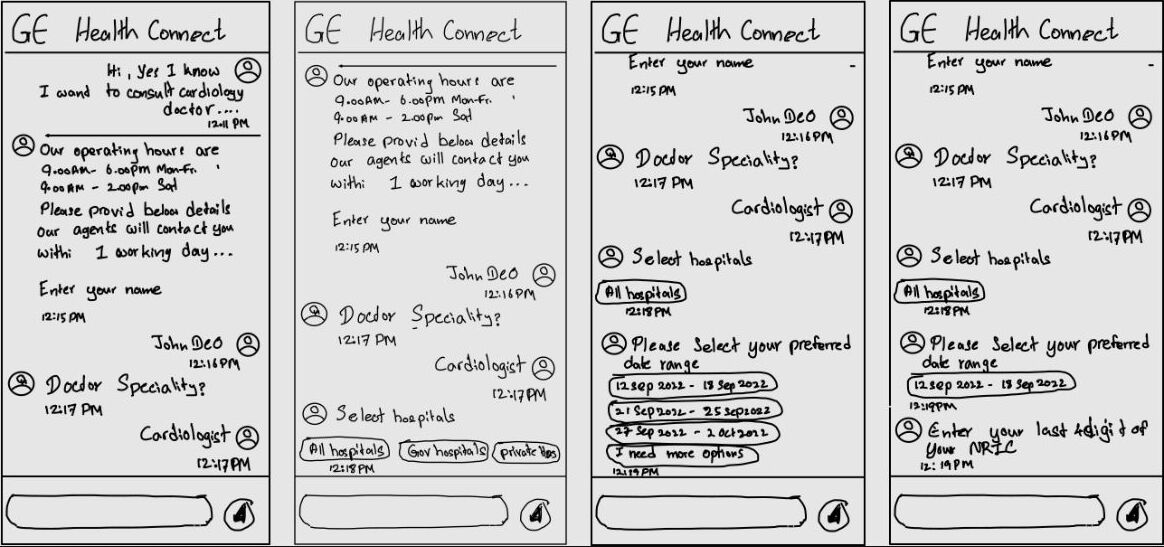 GE Health Connect
Hi, Yes I know
I want to consult cardiology
doctor....
12:11 PM
Our operating hours are
9.00AM- 6.00pm Mon-Fri.
9.00 AM - 2.00pm Sat
Please provid below details
our agents will contact you
withi 1 working day...
Enter your name
12:15 PM
John Deo
12:16PM
Doctor Speciality?
12:17 PM
Cardiologist
12:17PM
GE Health Connect
Our operating hours are
9.00AM- 6.00pm Mon-Fr.
9.00AM - 2.00pm Sat
Please provid below details
our agents will contact you
withi 1 working day...
Enter your name
12:15 PM
John Deo
12:16PM
Doctor Speciality?
12:17 PM
Cardiologist
12:17PM
Select hospitals
All hospitals Gov hospitals private Hos
12:18PM
GE Health Connect
Enter your name
12:15 PM
John Deo
12:16PM
Doctor Speciality?
12:17 PM
Cardiologist
12:17PM
Select hospitals
All hospitals
12:18PM
Please Select your preferred
date range
12 sep 2022 - 18 sep 2022
21 Sep 2022 - 25 sep 2022
27 Sep 2022 - 2 Oct 2022
I need more options
12:19PM
GE Health Connect
Enter your name
12:15 PM
John Deo
12:16PM
Doctor Speciality?
12:17 PM
Cardiologist
12:17PM
Select hospitals
All hospitals
12:18PM
Please Select your preferred
date range
12 sep 2022 - 18 sep 2022
12:19PM
Enter your last 4digit of
your NRIC
12:19PM